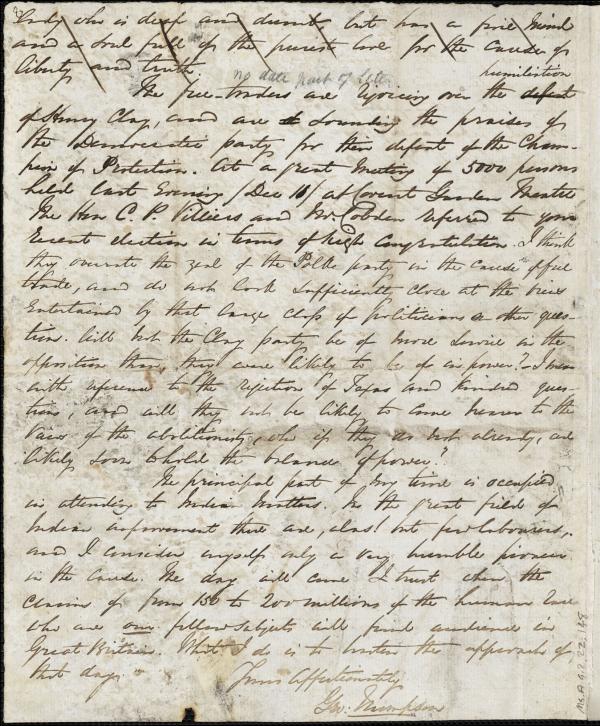 lady who is deaf and dumb but has a fine mind
and a soul full of the purest love for the cause of
liberty and truth.
no date part of letter
humiliation
The free-traders are rejoicing over the defeat
of Henry Clay, and are sounding the praises of
the Democratic party for their defeat of the Cham-
pion of Protection. At a great Meeting of 5000 persons
held last Evening (Dec 11) at Covent Garden Theatre
the Hon C. P. Villiers and Mr Cobden referred to your
recent election in terms of high congratulation. I think
they overrate the zeal of the Polk party in the cause of free
trade, and do not look sufficiently close at the views
entertained by that large class of politicians on other ques-
tions. Will not the Clay party be of more service in the
opposition than they were likely to be if in power? I mean
with reference to the rejection of Texas and kindred ques-
tions, and will they not be likely to come nearer to the
views of the abolitionists, who if they do not already, are
likely soon to hold the balance of power?
The principal part of my time is occupied
in attending to Indian Matters. In the great field of
Indian improvement there are, alas! but few labourers,
and I consider myself only a very humble pioneer
in the cause. The day will come I trust when the
claims of from 150 to 200 millions of the human race
who are our fellow subjects will find audience in
Great Britain. What I do is to hasten the approach of
that day.
Yours affectionately
Geo. Thompson
Ms. A.9.2.22.148